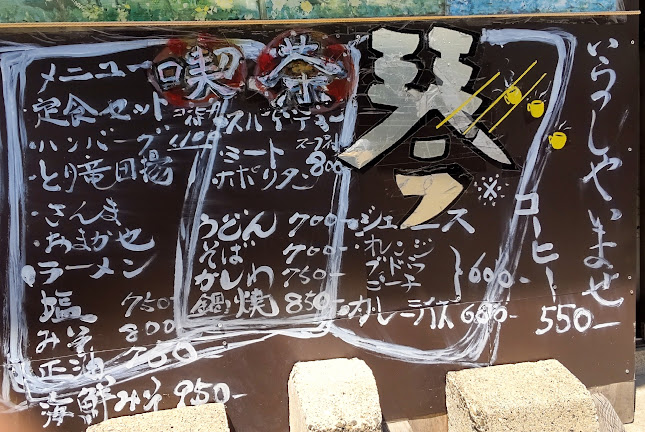 喫茶
琴
いらっしゃいませ
メニュー
定食セット
・ハンバーグ
・とり竜田揚
・さんま
・おまかせ
ラーメン
塩 750-
みそ 800
正油 750
海鮮みそ 950-
スパゲティー
・ミート
・ナポリタン 800
うどん 700-
そば 700-
かしわ 750-
鍋焼 850-
ジュース
・オレンジ
・ブドウ
・ピーチ
600-
カレーライス 600-
コーヒー 550-